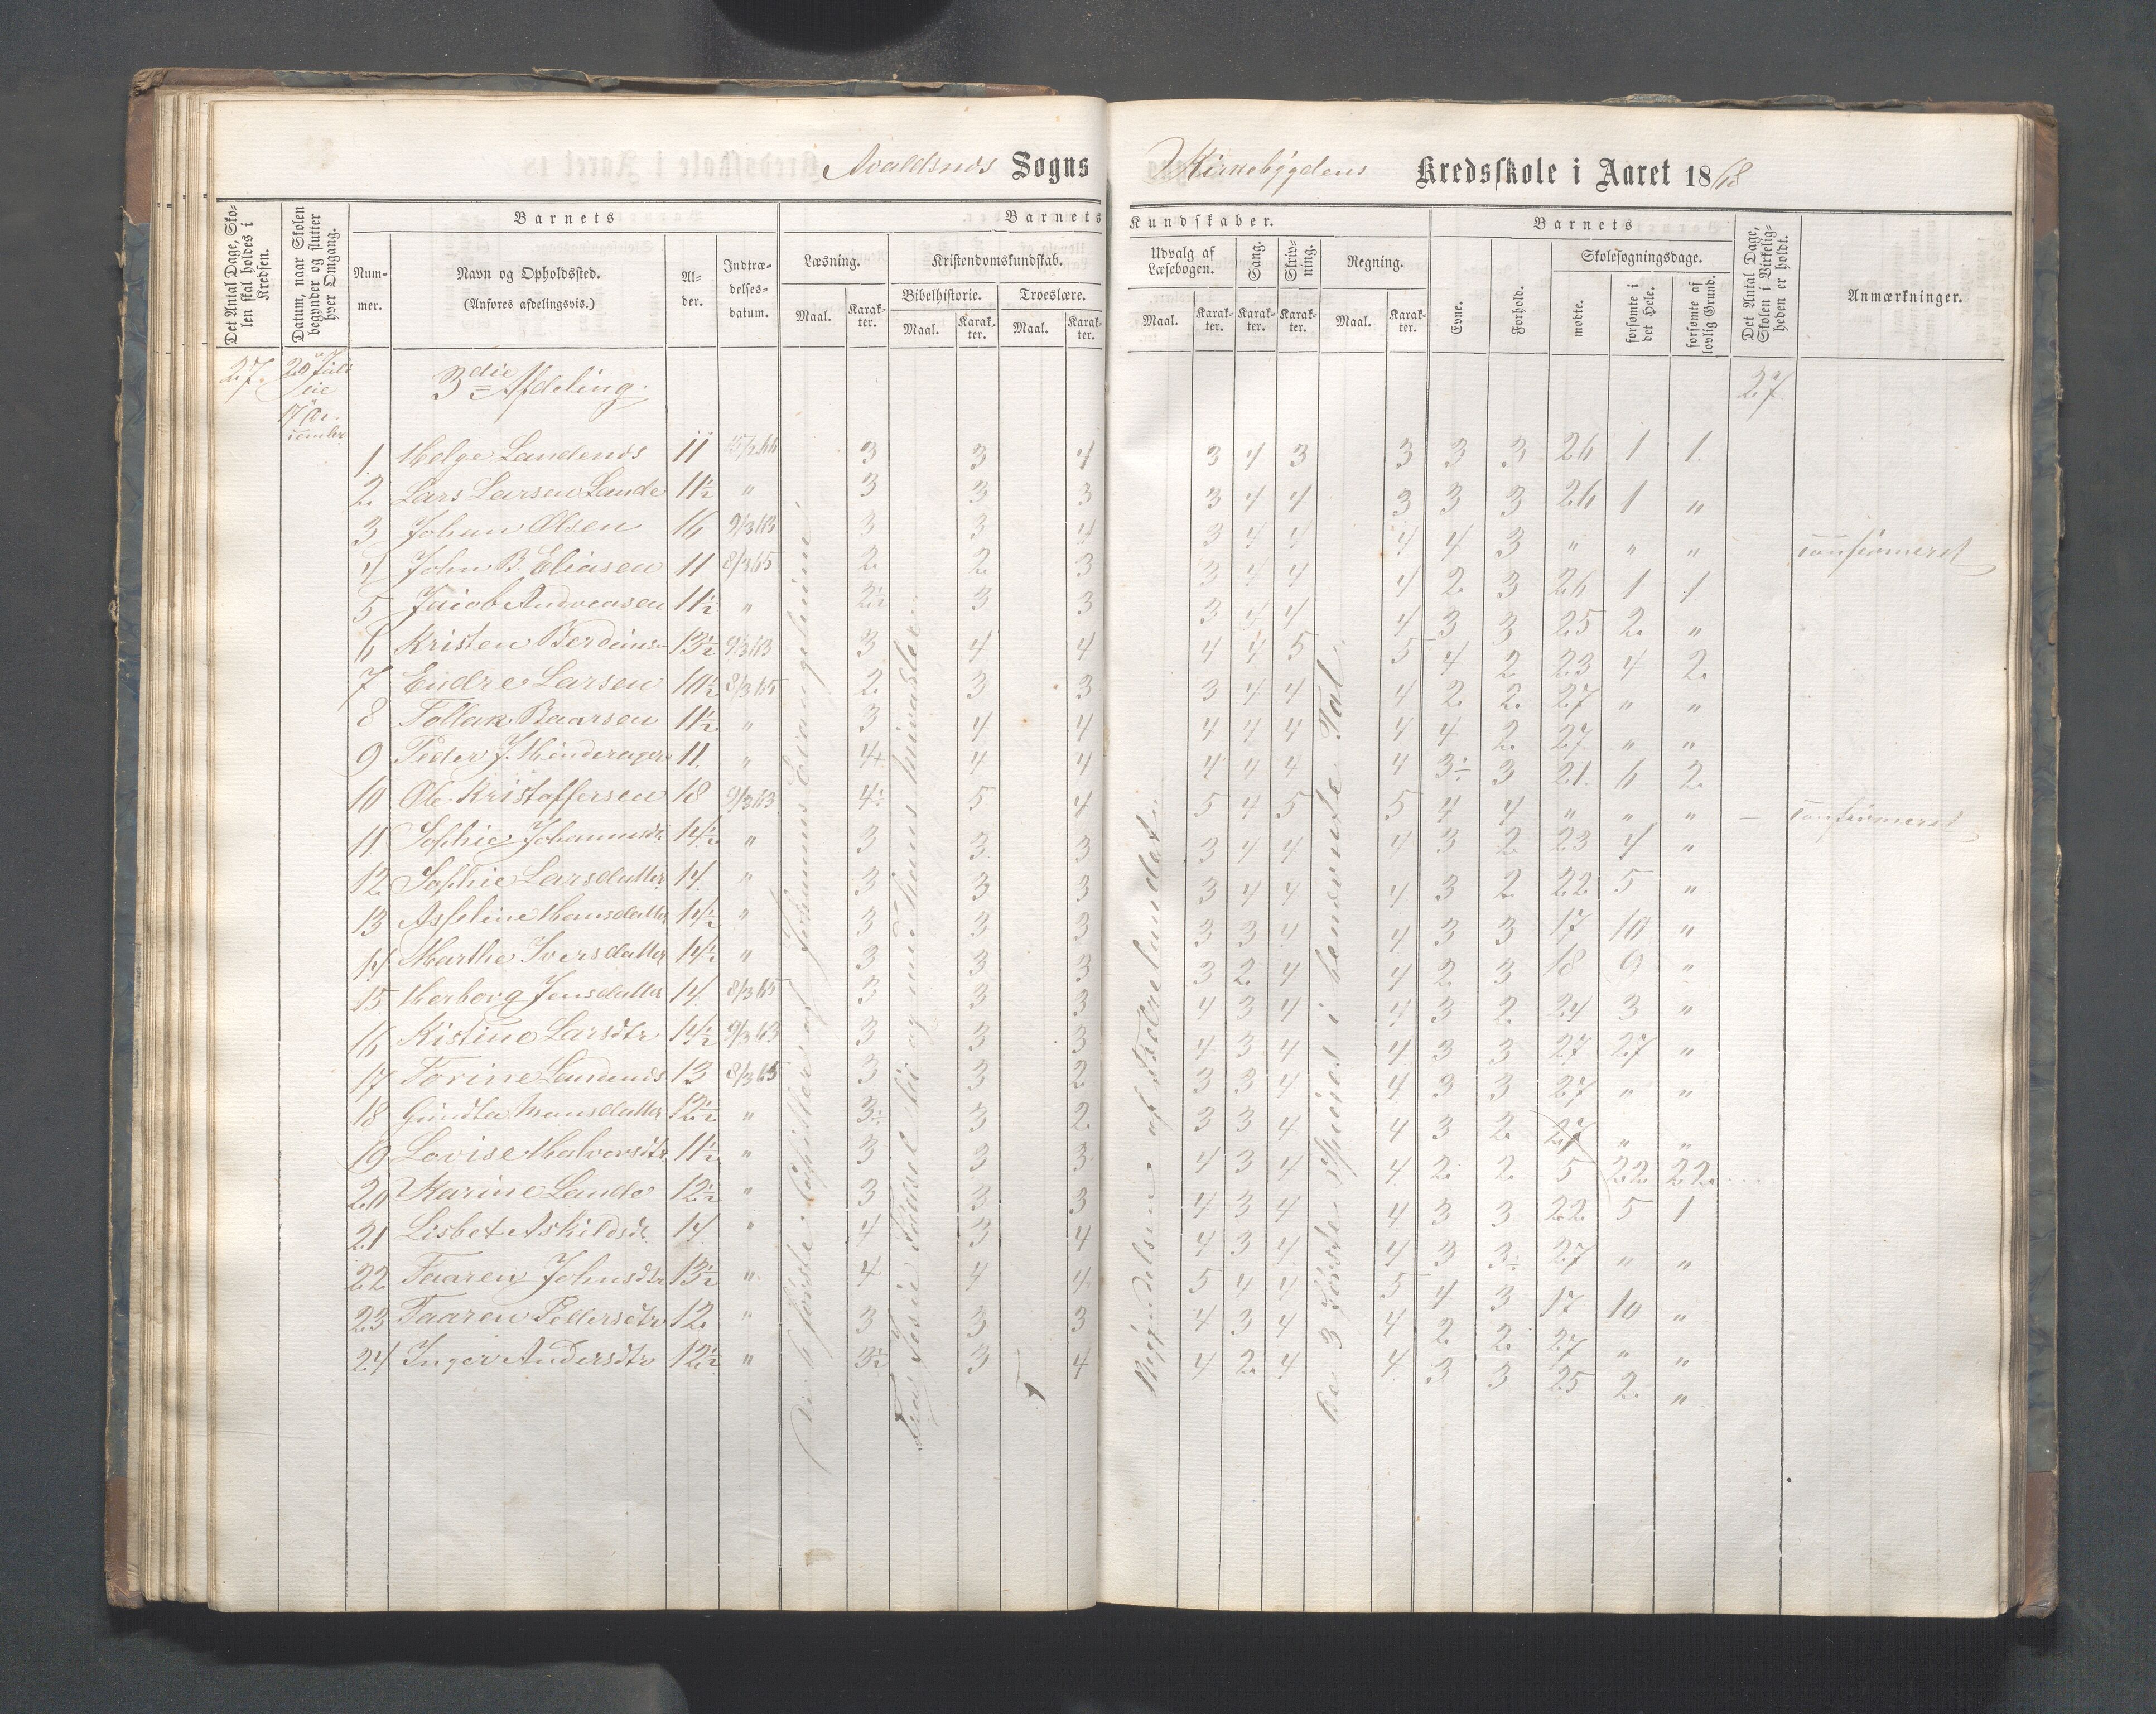 Avaldsnes Sogns Kirkebygdens Kredsskole i Aaret 1868
Det Antal Dage, Skolen skal holdes i Kredsen.
Datum, naar Skolen begynder og slutter hver Omgang.
Barnets
Nummer.
Navn og Opholdssted.
(Anføres afdelingsvis.)
Alder.
Indtrædelsesdatum.
Barnets Kundskaber.
Læsning.
Maal.
Karakter.
Kristendomskundskab.
Bibelhistorie.
Maal.
Karakter.
Troeslære.
Maal.
Karakter.
Udvalg af Læsebogen.
Maal.
Karakter.
Sang.
Karakter.
Skrivning.
Karakter.
Regning.
Maal.
Karakter.
Barnets
Evne.
Forhold.
Skolesøgningsdage.
mødte.
forsømte i det Hele.
forsømte af lovlig Grund.
Det Antal Dage, Skolen i Virkeligheden er holdt.
Anmærkninger.
27. 3die Afdeling. 27
1 Helge Landenes 11 3 3 4 3 4 3 3 3 3 26 1 1
2 Lars Larsen Lande 11½ " 3 3 3 3 4 4 3 3 3 26 1 "
3 Johan Olsen 16 9/3 63 3 3 4 3 4 4 4 4 3 " " " confirmeret
4 John B. Eliasen 11 8/3 65 2 2 3 3 4 4 4 2 3 26 1 1
5 Jacob Andreasen 11½ " 2½ 3 3 3 4 4 4 3 3 25 2 "
6 Kristen 13½ 9/3 63 3 4 4 4 4 5 5 4 2 23 4 2
7 Endre Larsen 10½ 8/3 65 2 3 3 3 4 4 4 2 2 27 " "
8 Tollak Baarsen 11½ " 3 4 4 4 4 4 4 4 2 27 " "
9 Peder J. 11 " 4+ 4 4 4 4 4 4 3÷ 3 21 6 2
10 Ole Kristoffersen 18 9/3 63 4÷ 5 4 5 4 5 5 4 4 " " " – confirmeret
11 Sophie 14½ " 3 3 3 3 4 4 4 3 2 23 4 "
12 Sophie Larsdatter 14 " 3 3 3 3 4 4 4 3 2 22 5 "
13 Asseline Hansdatter 14½ " 3 3 3 3 3 4 4 3 3 17 10 "
14 Marthe Iversdatter 14½ " 3 3 3 3 2 4 4 2 3 18 9 "
15 Herborg Jensdatter 14 8/3 65 3 3 3 4 3 4 4 3 2 24 3 "
16 Kistine Larsdtr 14½ 9/3 63 3 3 3 4 3 4 4 3 3 27 27 "
17 Torine 13 8/3 65 3 3 2 3 3 4 4 3 3 27 " "
18 Gundla Hansdatter 12½ " 3÷ 3 2 3 3 4 4 3 2 27 " "
19 Lovise Halvorsdtr 11½ " 3 3 3 4 3 4 4 2 2 5 22 22
20 Karine Lande 12½ " 3 3 3 4 3 4 4 3 3 22 5 1
21 Lisbet Askildsdr 14 " 4 3 4 4 3 4 4 3 3÷ 27 " "
22 Taaren Johnsdtr 13½ " 4 4 4 5 4 4 5 4 3 17 10 "
23 Taaren Pedersdtr 12 " 3 3 3 4 3 4 4 2 2 27 " "
24 Inger Andersdtr 12½ " 3½ 3 4 4 2 4 4 3 3 25 2 "
De 6 første Capitler af Johannes Evangelium
Fra Jesu Fødsel til og med Hans
Begyndelsen af Fædrelandet
De 3 første Species i benævnte Tal